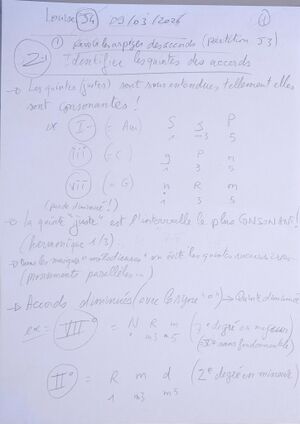 Louise J4 09/03/2026 1
2) 1 les arpèges des accords (partition J3)
Identifier les quintes des accords
→ Les quintes (justes) sont sous-entendues tellement elles
sont consonantes !
ex I- (= Am) S P
1 3 5
iii (= C) P n
1 3 5
vii (= G) n R m
1 3 5
→ la quinte "juste" est l'intervalle le plus CONSONANT !
(harmonique 1/3)
on évite les quintes successives
(mouvements parallèles...)
→ Accords diminués (avec le signe "o") → Quinte diminuée
ex = VII° = N R m (7° degré en majeur
1 m3 5 sans fondamentale)
II° = R m d (2° degré en mineur)
1 m3 m5